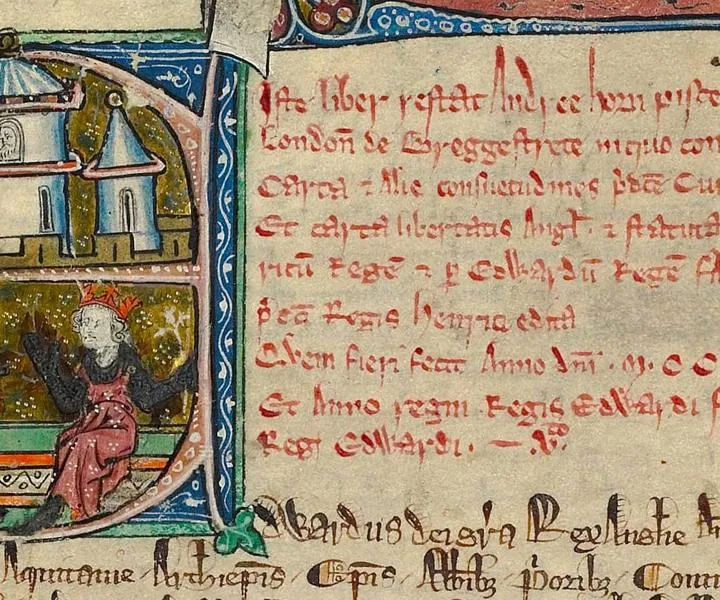 Iste liber restat Andree horn piste
London̄ de Breggestrete in quo con
Carta ⁊ Alie consuetudines p̄dcē Ciu
Et carta libertatis Angl̄ ⁊ statuta
ricū Regē ⁊ p̱ Edwardū Regē fil
p̄dcī Regis Henrici edita
Quem fieri fecit Anno dn̄i · M · C C
Et Anno regni Regis Edwardi f
Regis Edwardi · — · v
dwardus dei gr̄a Rex Anglie
Aquitanie Archiep̄is Ep̄is Abb̄ib3 P̄orib3 Comi